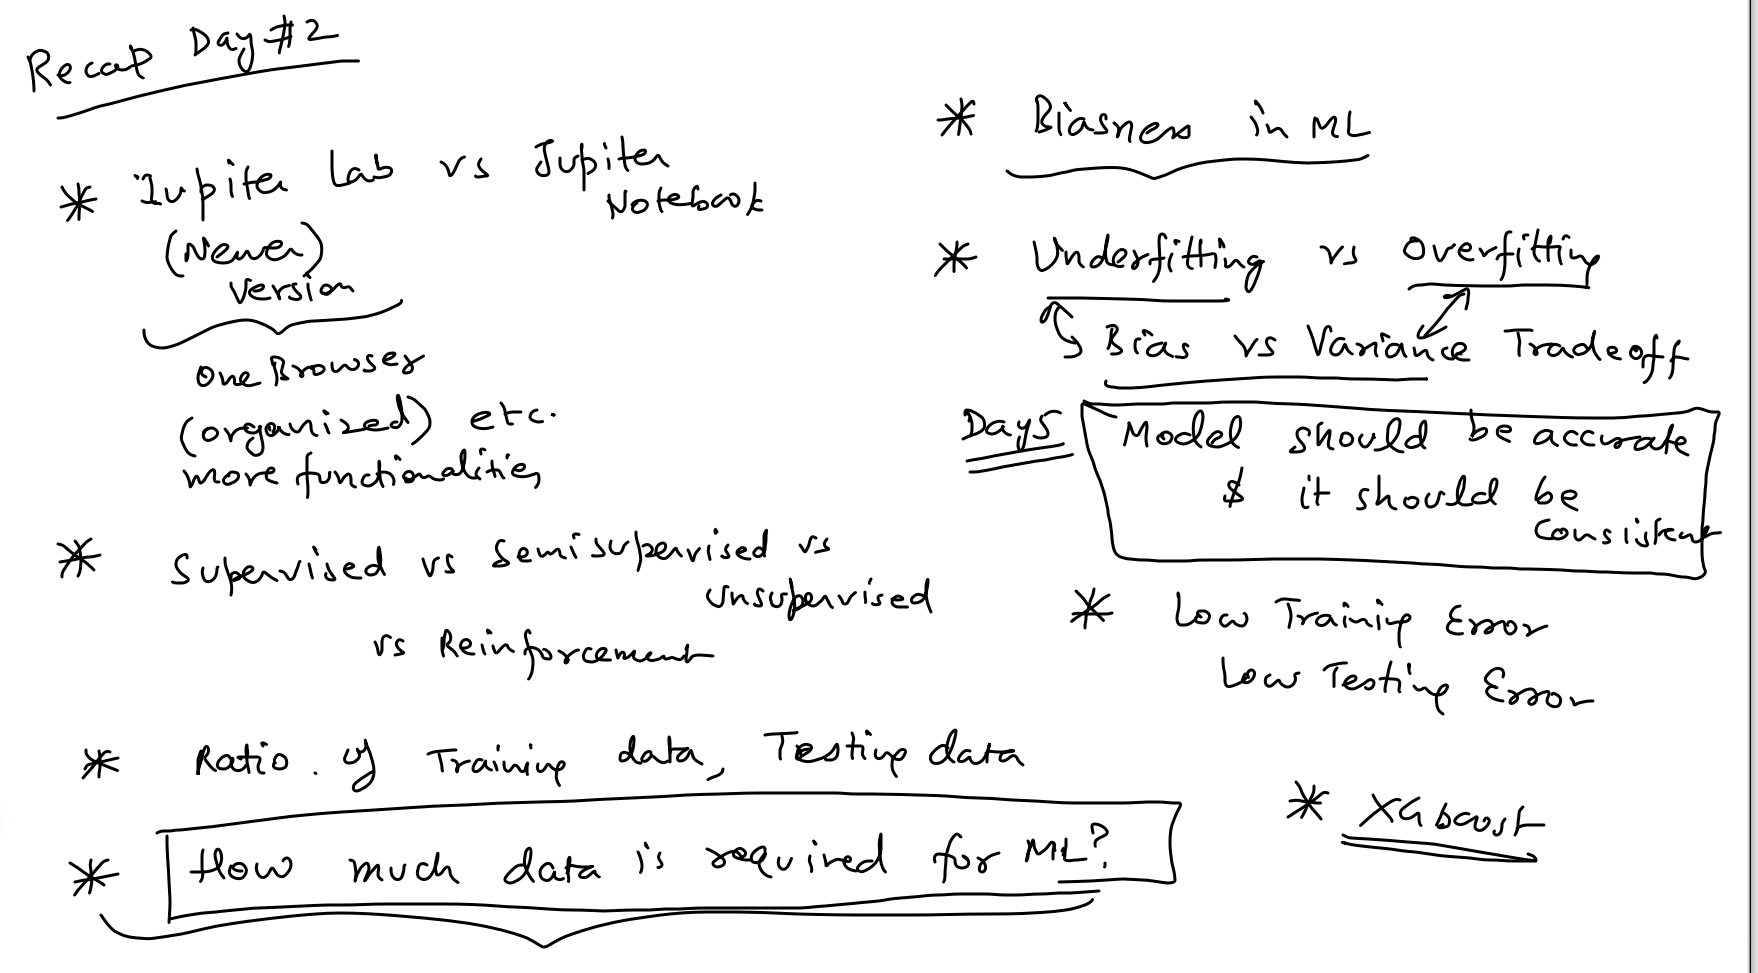 Recap Day #2
* Jupiter Lab vs Jupiter
Notebook
(Newer)
Version
One Browser
(organized) etc.
more functionalities
* Supervised vs Semisupervised vs
Unsupervised
vs Reinforcement
* Ratio. of Training data, Testing data
* How much data is required for ML?
* Biasness in ML
* Underfitting vs Overfitting
Bias vs Variance Tradeoff
Day5
Model should be accurate
$ it should be
Consistent
* Low Training Error
Low Testing Error
* XGboost